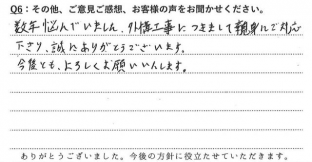 Q6：その他、ご意見ご感想、お客様の声をお聞かせください。
数年悩んでいました、外構工事につきまして親身にご対応
下さり、誠にありがとうございます。
今後とも、よろしくお願いいたします。
ありがとうございました。今後の方針に役立たせていただきます。